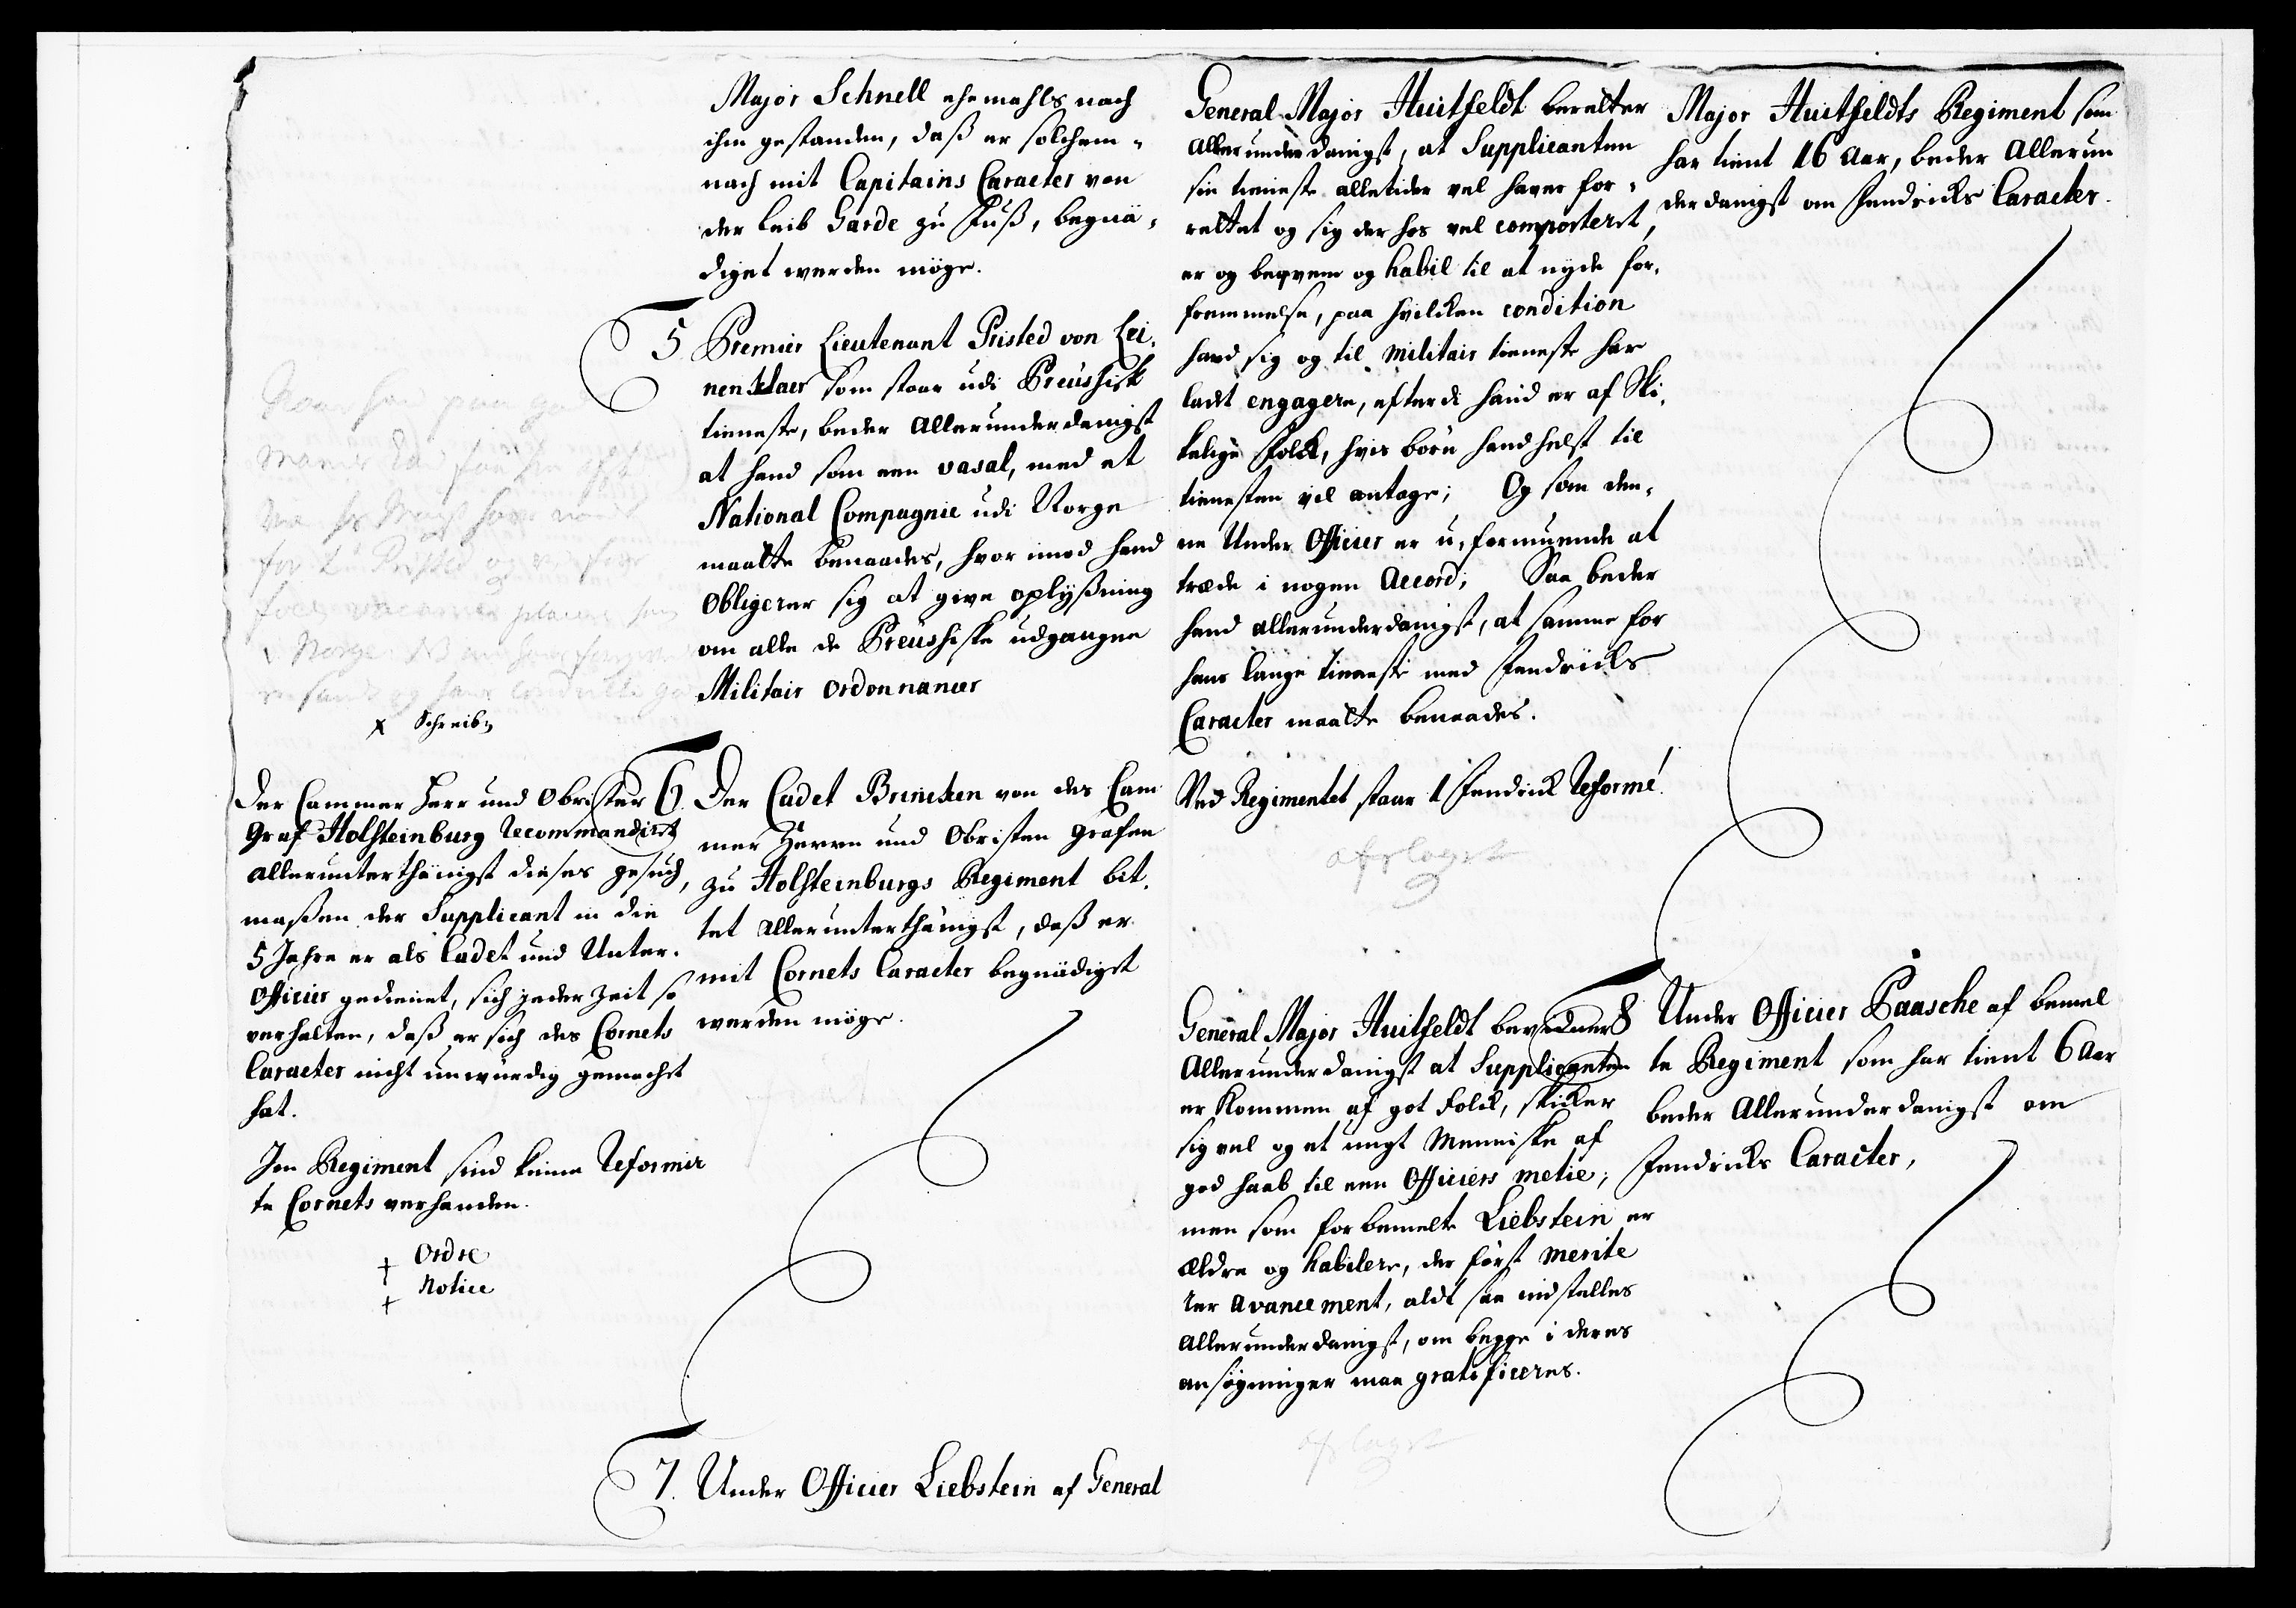 Major Schnell ehemahls nach
ihm gestanden, daß er solchem-
nach mit Capitains Caracter von
der Leib Garde zu Fuß, begnä-
diget werden möge.
5 Premier Lieutenant Pristed von Lei-
nen Klaer som staar udi Preussisk
tieneste, beder Allerunderdanigst
at hand som een vasal, med et
National Compagnie udi Norge
maatte benaades, hvorimod hand
Obligerer sig at give oplysning
om alle de Preussiske udgangne
Militair ordonnancer
Naar hand paa
for Lt Pristed og
i Norge
x Schreib:
Der Cammer Herr und Obrister
Graf Holsteinburg recommandiret
allerunterthänigst dieses gesuch,
maßen der Supplicant in die
5 Jahre er als Cadet und Unter-
Officier gedienet, sich jeder Zeit so
verhalten, daß er sich des Cornets
Caracter nicht unwürdig gemacht
hat.
Im Regiment sind keine Reformir
te Cornets verhanden.
† Ordre
† Notice
6. Der Cadet Brincken von des Cam
mer Herrn und Obristen Grafen
zu Holsteinburgs Regiment bit-
tet allerunterthänigst, daß er
mit Cornets Caracter begnädiget
werden möge.
7. Under Officier Liebstein af General
Major Huitfeldts Regiment som
har tient 16 Aar, beder Allerun
derdanigst om Fendricks Caracter.
General Major Huitfeldt beretter
Allerunderdanigst, at Supplicanten
sin tieneste alletider vel haver for-
rettet og sig derhos vel comporteret,
er og beqvem og habil til at nyde for-
fremmelse, paa hvilcken condition
hand sig og til Militair tieneste har
ladt engagere, efterdi hand er af Ski-
kelige Folck, hvis børn hand helst til
tienesten vil antage; Og som den-
ne Under Officier er u-formuende at
træde i nogen Accord; Saa beder
hand allerunderdanigst, at samme for
hans lange tieneste med Fendricks
Caracter maatte benaades.
Ved Regimentet staar 1 Fendrick Reformé.
afslaget
General Major Huitfeldt beretter
Allerunderdanigst at Supplicanten
er kommen af got Folck, skicker
sig vel og et ungt Menniske af
god haab til een Officiers metie;
men som forbemelte Liebstein er
ældre og habilere, der først merite
rer avancement, aldt saa indstilles
Allerunderdanigst, om begge i deres
ansøgninger maa gratificeres.
afslaget
8 Under Officier Paasche af bemel
te Regiment som har tient 6 Aar
beder Allerunderdanigst om
Fendricks Caracter,